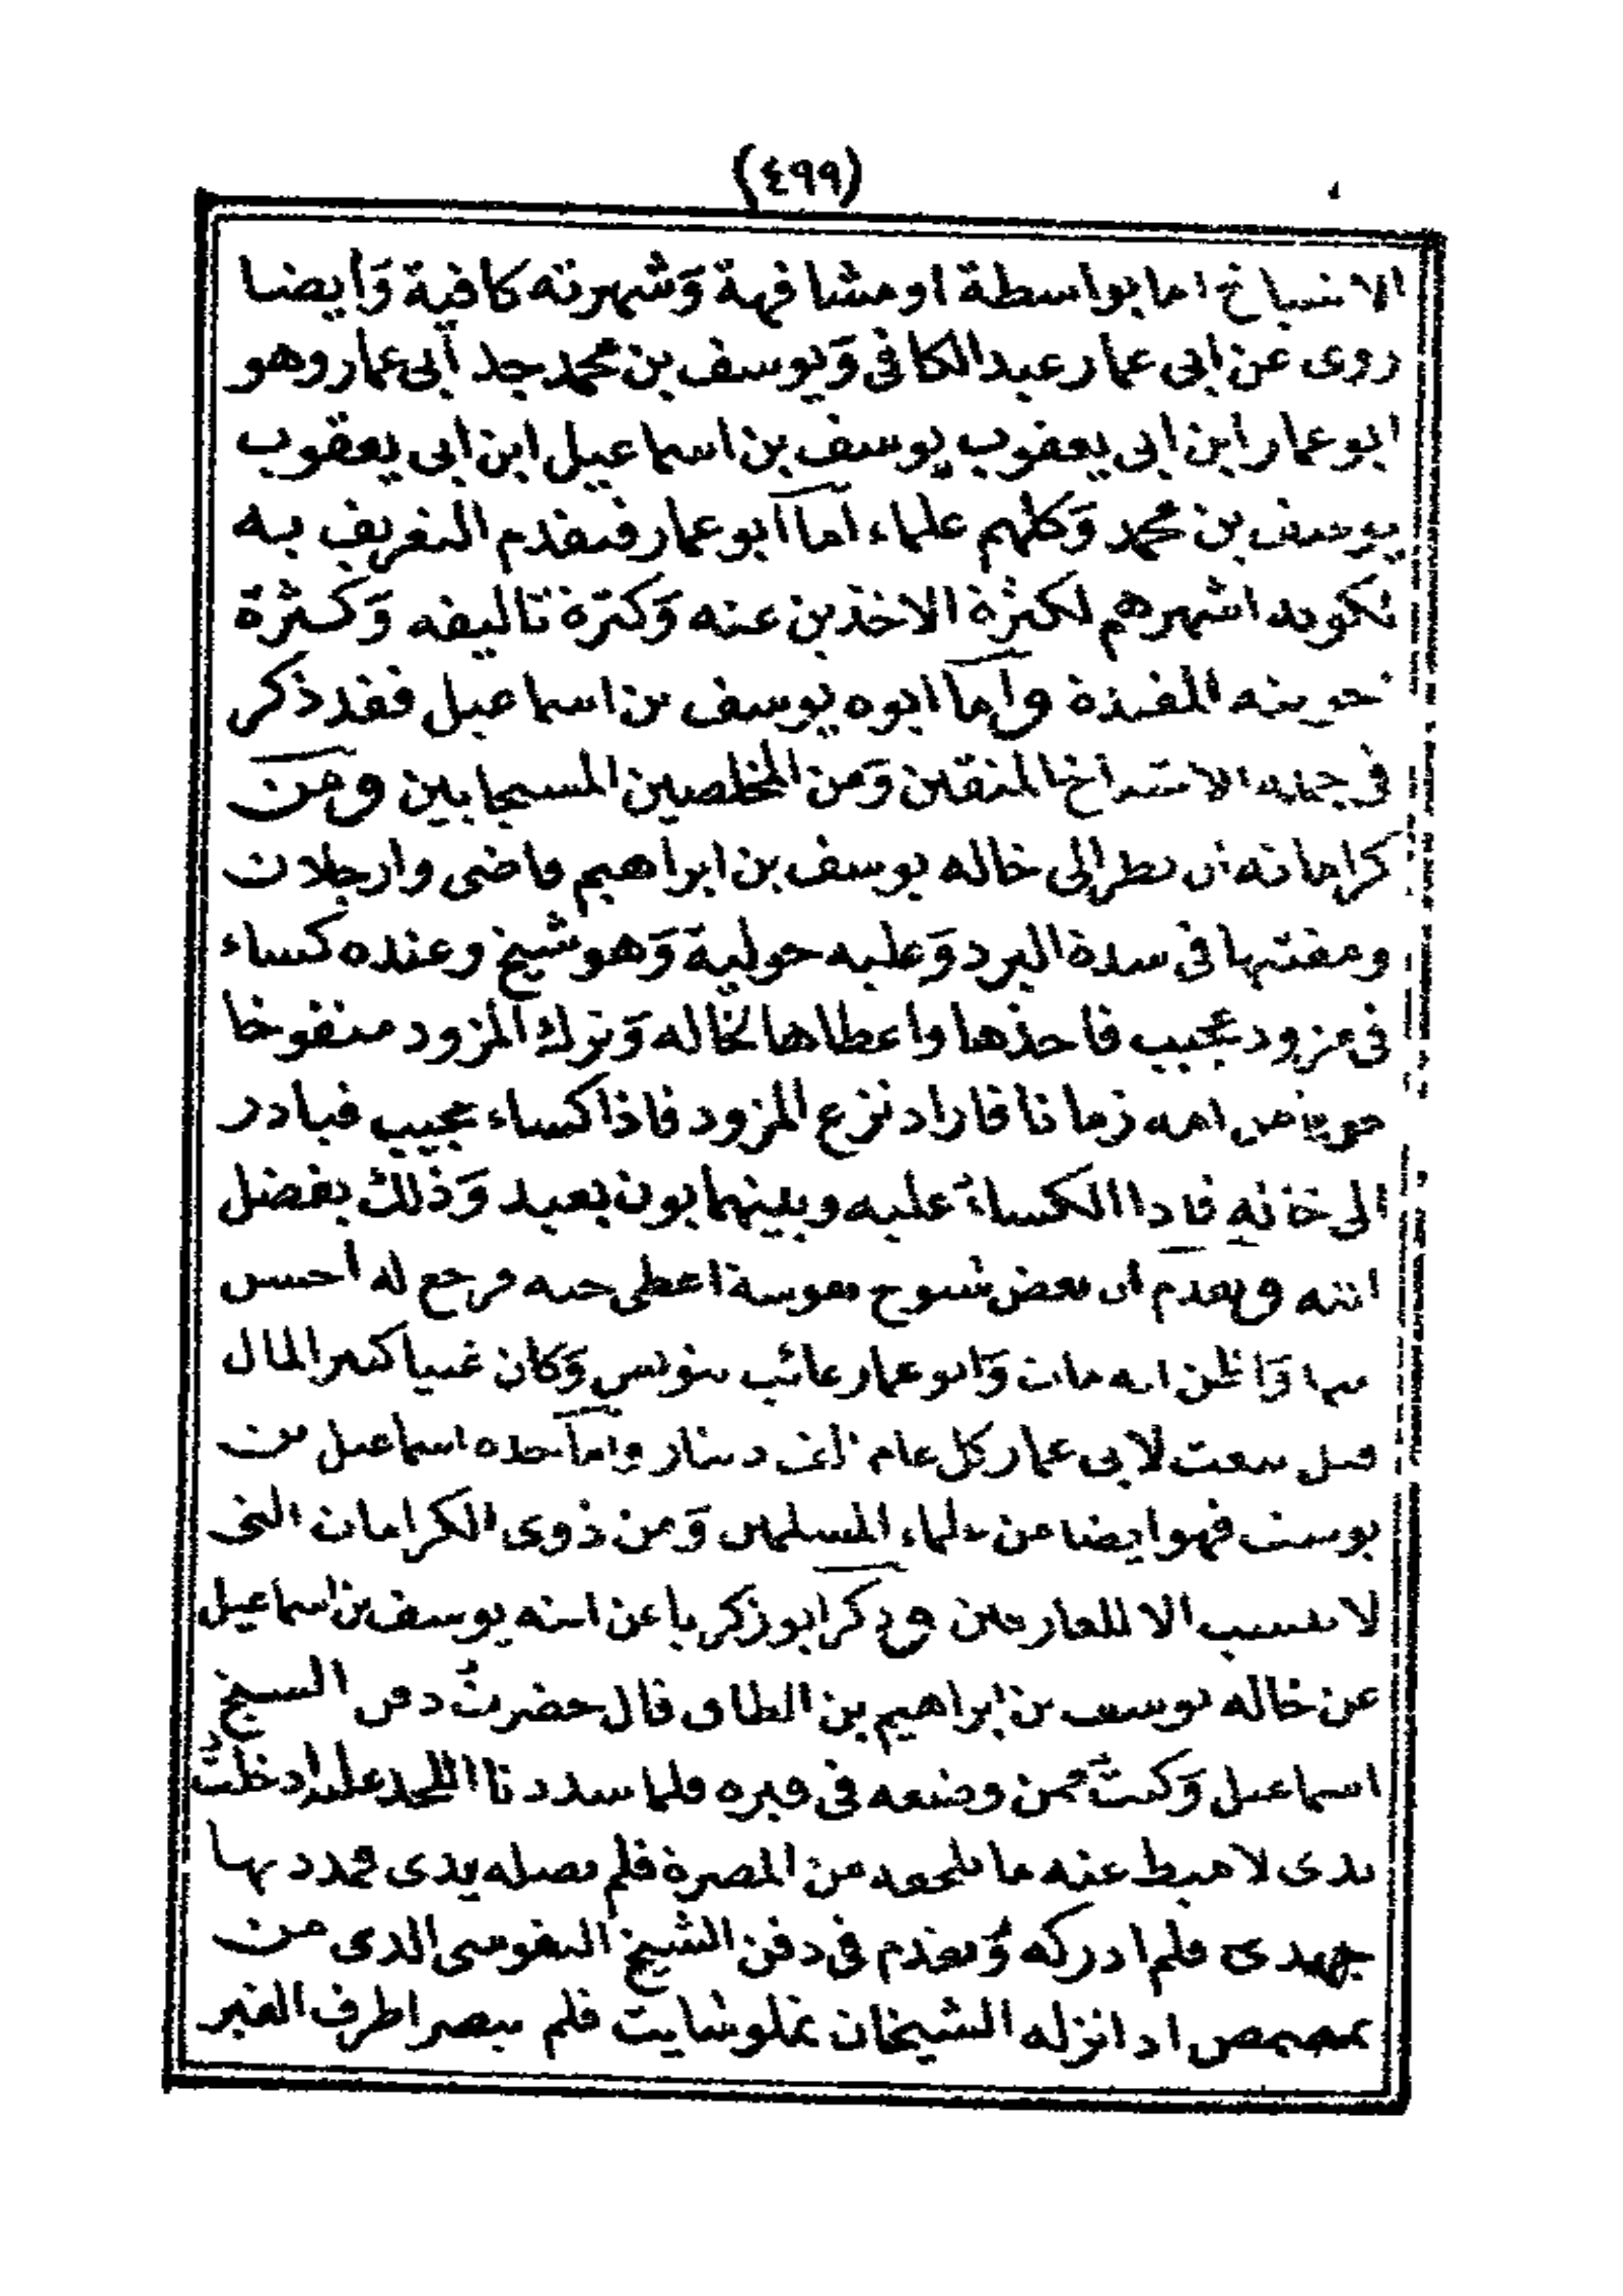 (٤٩٩)
الاشياخ اما بواسطة او مشافهة وَشهرته كافية وَأيضا
روى عن ابى عمار عبد الكافى وَيوسف بن محمد جد أبى عمار وهو
ابو عمار ابن ابى يعقوب يوسف بن اسماعيل ابن ابى يعقوب
يوسف بن محمد وَكلهم علماء أما أبو عمار فتقدم التعريف به
لكونه اشهرهم لكثرة الاخذين عنه وَكثرة تاليفه وَكثرة
المفيدة وأما ابوه يوسف بن اسماعيل فقد ذكر
فى جملة الاشياخ المتقين وَمن المخلصين المستجابين ومن
كراماته ان نظر الى خاله يوسف بن ابراهيم قاضى وارجلان
ومفتيها فى شدة البرد وَعليه حولية وَهو شيخ وعنده كساء
فى مزود عجيب فاخذها واعطاها لخاله وَترك المزود منفوخا
خوفا من امه زمانا فاراد نزع المزود فاذا كساء عجيب فبادر
الى خاله فاذا الكساء عليه وبينهما بون بعيد وَذلك بفضل
الله وتقدم ان بعض شيوخ نفوسة اعطى جبه فرجع له أحسن
منها وَاظن انه مات وَابو عمار غائب بتونس وَكان غنيا كثير المال
قيل يبعث لابى عمار كل عام ألف دينار وأما جده اسماعيل بن
يوسف فهو ايضا من علماء المسلمين وَمن ذوى الكرامات التى
لا تنسب الا للعارفين وذكر ابو زكريا عن ابنه يوسف بن اسماعيل
عن خاله يوسف بن ابراهيم بن قال حضرتُ دفن الشيخ
اسماعيل وَكنتُ ممن وضعه فى قبره فلما سددنا اللحد عليه ادخلتُ
يدى لاميط عنه ما من المضرة فلم تصله يدى فمددتها
جهدى فلم ادركه وَتقدم فى دفن الشيخ النفوسى الذى من
تمصمص اذ انزله الشيخان فلم يبصرا طرف القبر